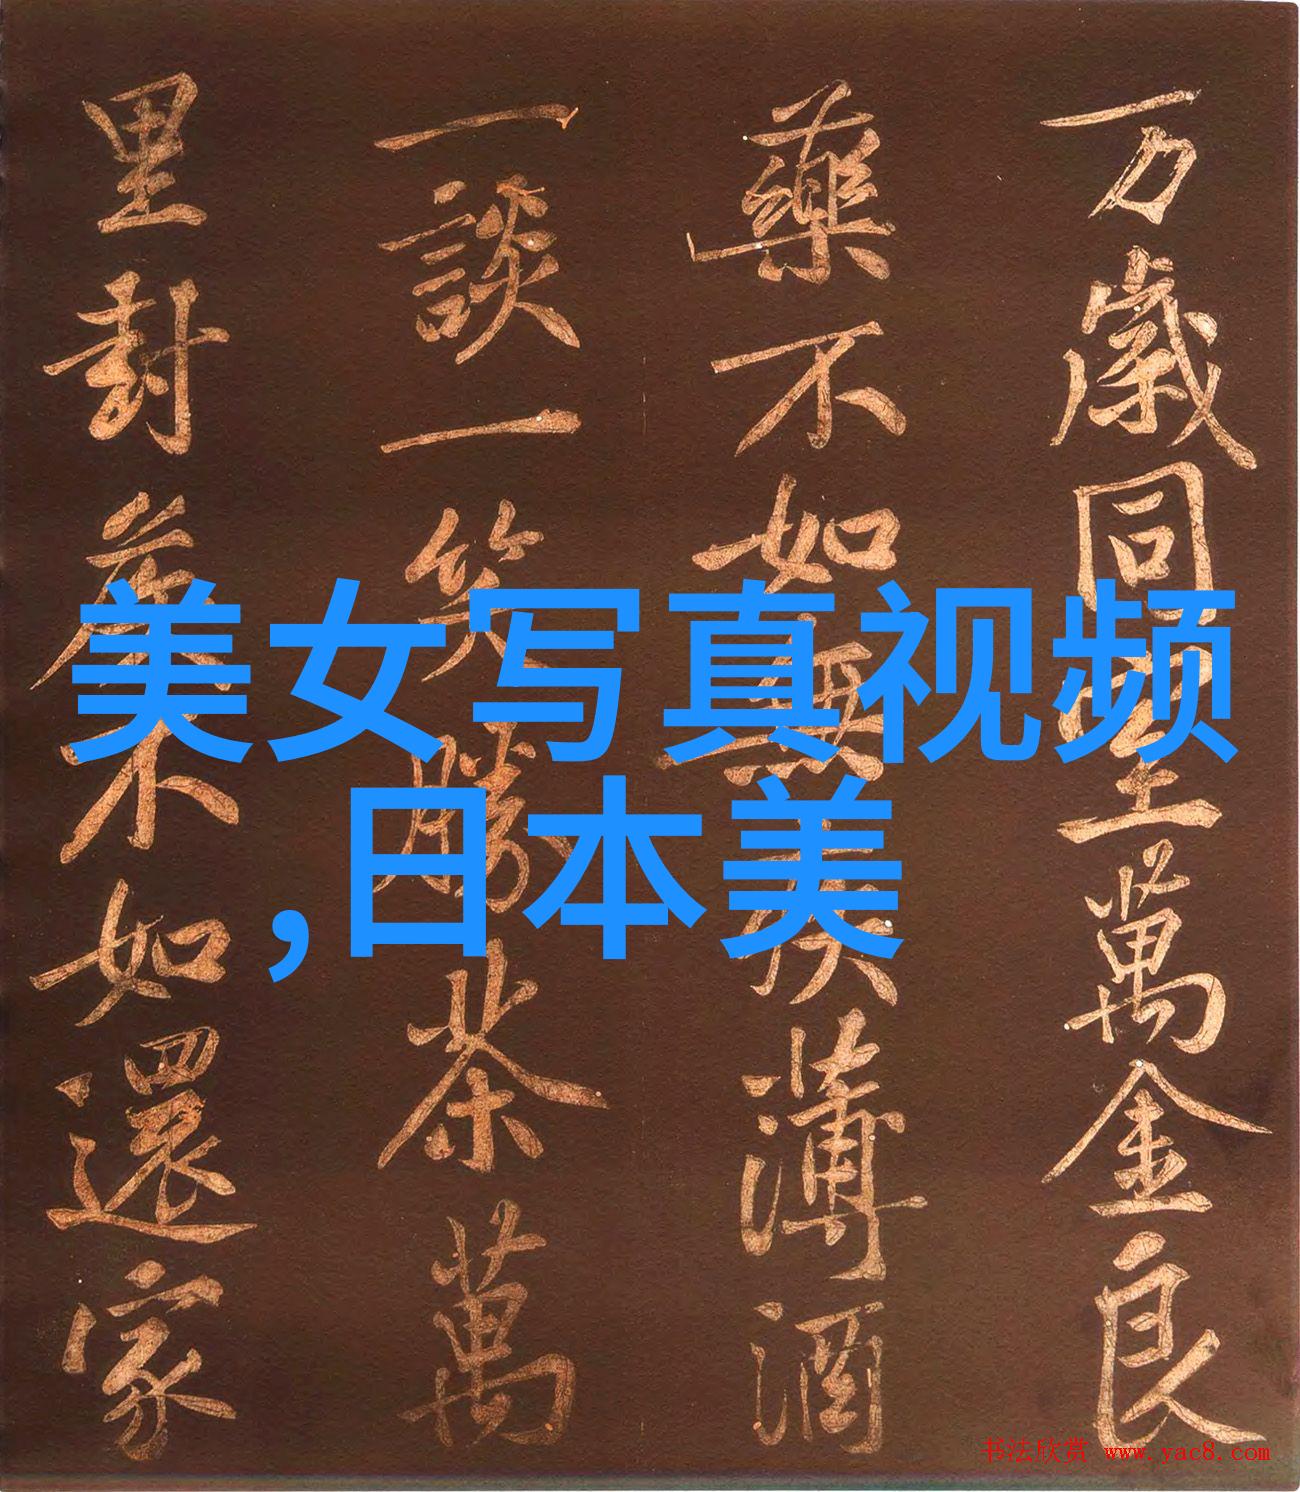 万歲同萬金良
藥不如無疾薄酒
一談一笑勝茶萬
里封侯不如還家
美女写真视频
,日本美
书法欣赏 www.yac8.com